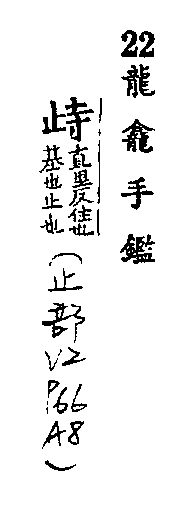 22龍龕手鑑
歭直里反住也
基也止也
(止部V2P66A8)